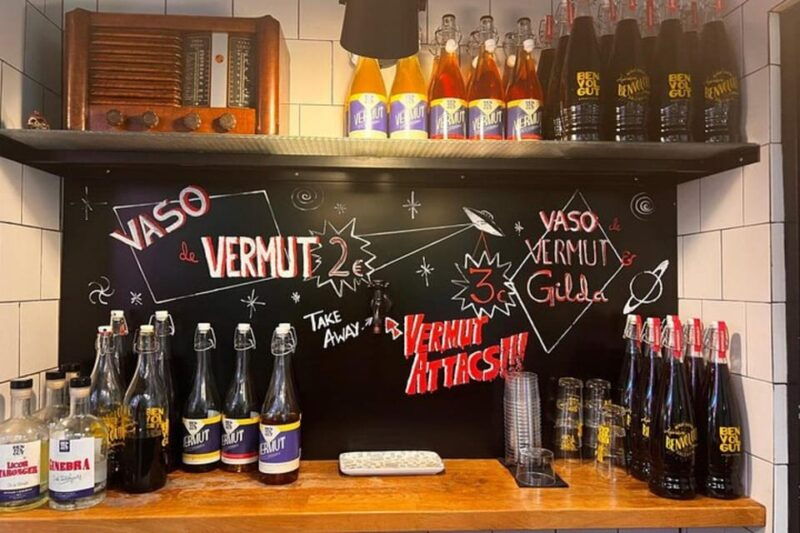 BEN
VOL
GUT
BENVOLGUT
BEN
VOL
GUT
BENVOLGUT
VERMUT
VERMUT
VERMUT
VERMUT
VERMUT
VASO
de VERMUT 2€
VASO de
VERMUT &
Gilda
3€
TAKE
AWAY
VERMUT
ATTACS!!!
VERMUT
VERMUT
VERMUT
LICOR
GINEBRA
BEN
VOL
GUT